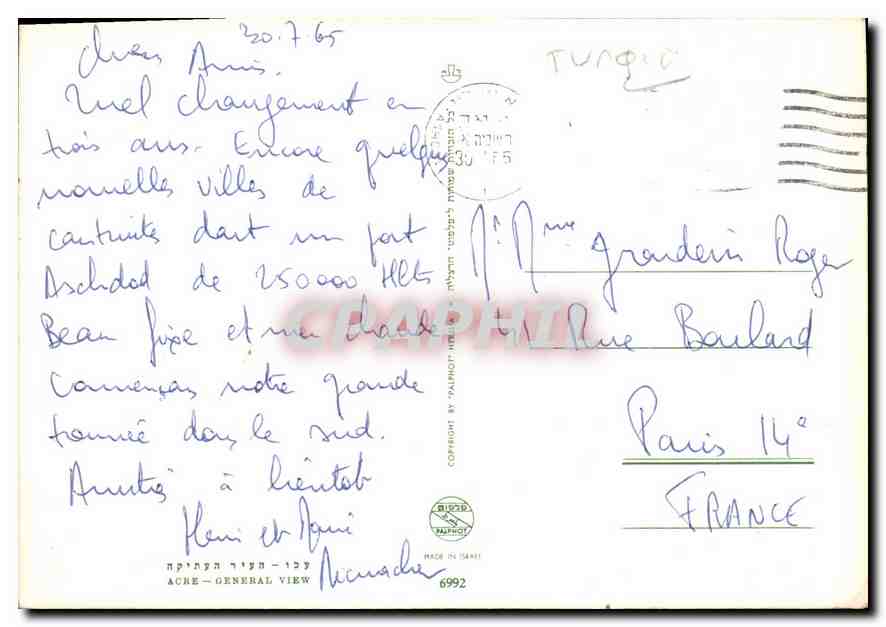 30.7.65
Chers Amis.
Quel changement en
trois ans. Encore quelques
nouvelles villes de
construites dont un port
Aschdod de 250000 Hbts
Beau fixe et mer chaude
Commençons notre grande
tournée dans le sud.
Amitiés à bientôt
Henri et
עכו - העיר העתיקה
ACRE - GENERAL VIEW
COPYRIGHT BY "PALPHOT" HERZLIA
כל הזכויות שמורות ל"פלפוט" הרצליה
פלפוט
PALPHOT
MADE IN ISRAEL
6992
TURQIE
Mr Mme Grandein Roger
Rue Boulard
Paris 14e
FRANCE
CPAPHIL